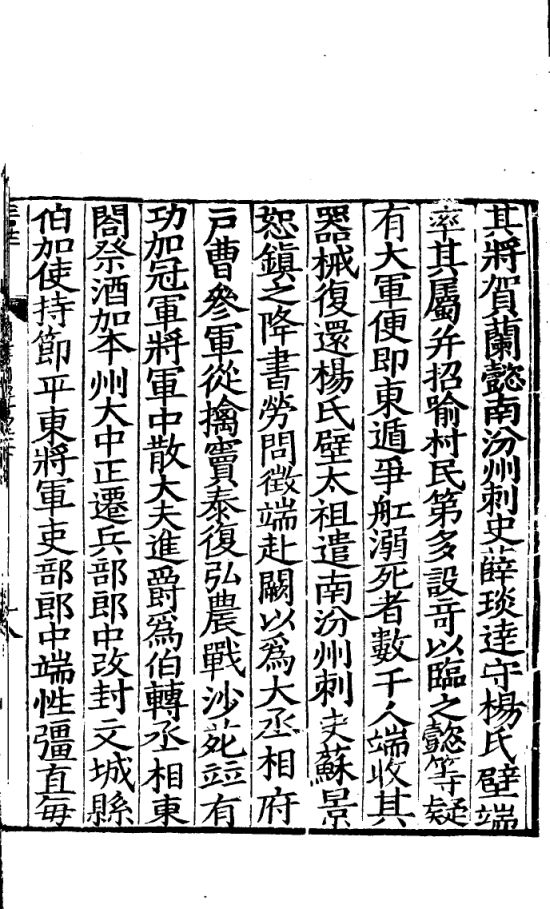 其將賀蘭懿南汾州刺史薛琰達守楊氏壁端
率其屬并招喻村民第多設奇以臨之懿等疑
有大軍便即東遁爭舡溺死者數千人端收其
器械復還楊氏壁太祖遣南汾州刺史蘇景
恕鎮之降書勞問徵端赴闕以爲大丞相府
戸曹參軍從擒竇泰復弘農戰沙苑竝有
功加冠軍將軍中散大夫進爵爲伯轉丞相東
閤祭酒加本州大中正遷兵部郎中改封文城縣
伯加使持節平東將軍吏部郎中端性彊直每